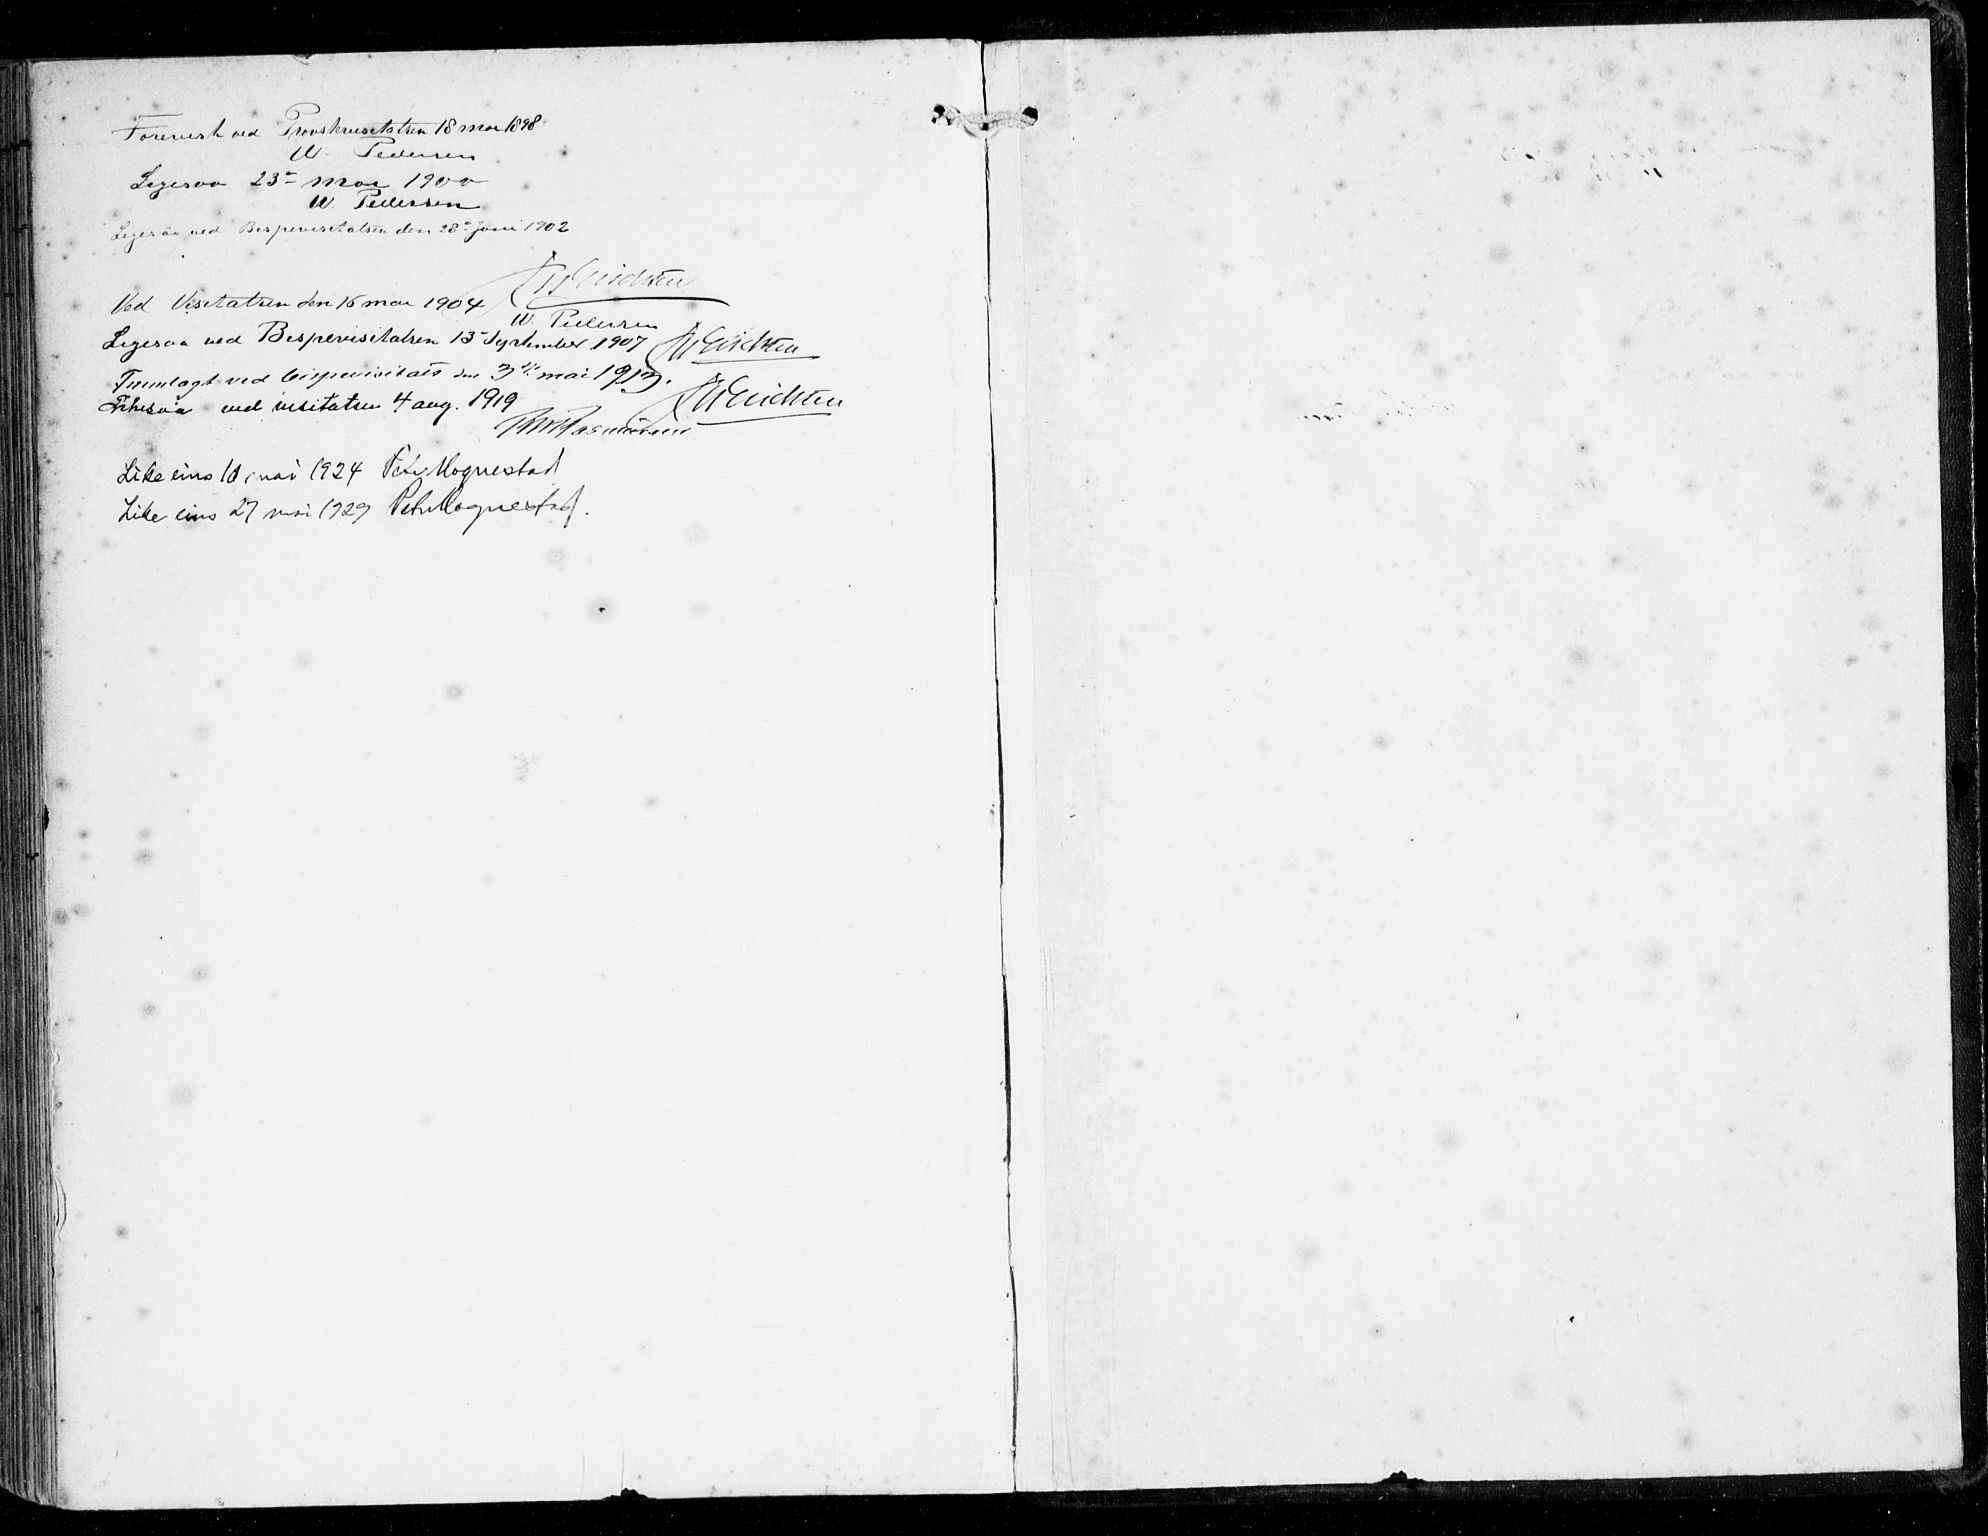 Forevist ved Provstevisitatsen 18 mai 1898
W. Pedersen
Ligesaa 23de mai 1900
W. Pedersen
Ligesaa ved Bispevisitatsen den 28de juni 1902
Erichsen
Ved Visitatsen den 16 mai 1904
W. Pedersen
Ligesaa ved Bispevisitatsen 15de September 1907 Erichsen
Fremlagt ved bispevisitats den 3die mai 1913.
Erichsen
Likesaa ved visitatsen 4 aug. 1919
Rasmussen
Like eins 10 mai 1924 Peter Hognestad
Like eins 27 mai 1929 Peter Hognestad.